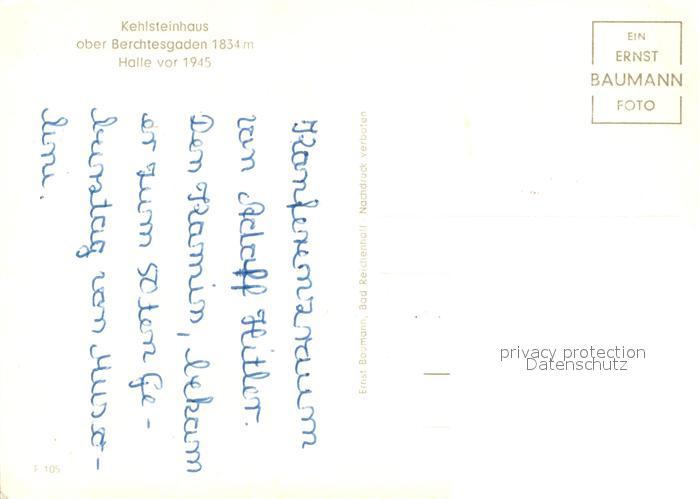 Kehlsteinhaus
ober Berchtesgaden 1834 m
Halle vor 1945
EIN
ERNST
BAUMANN
FOTO
Konferenzraum
von Adolf Hitler.
Den Kamin, bekam
er zum 50ten Ge-
burstag von Musso-
lini.
Ernst Baumann, Bad Reichenhall Nachdruck verboten
privacy protection
Datenschutz
F 105